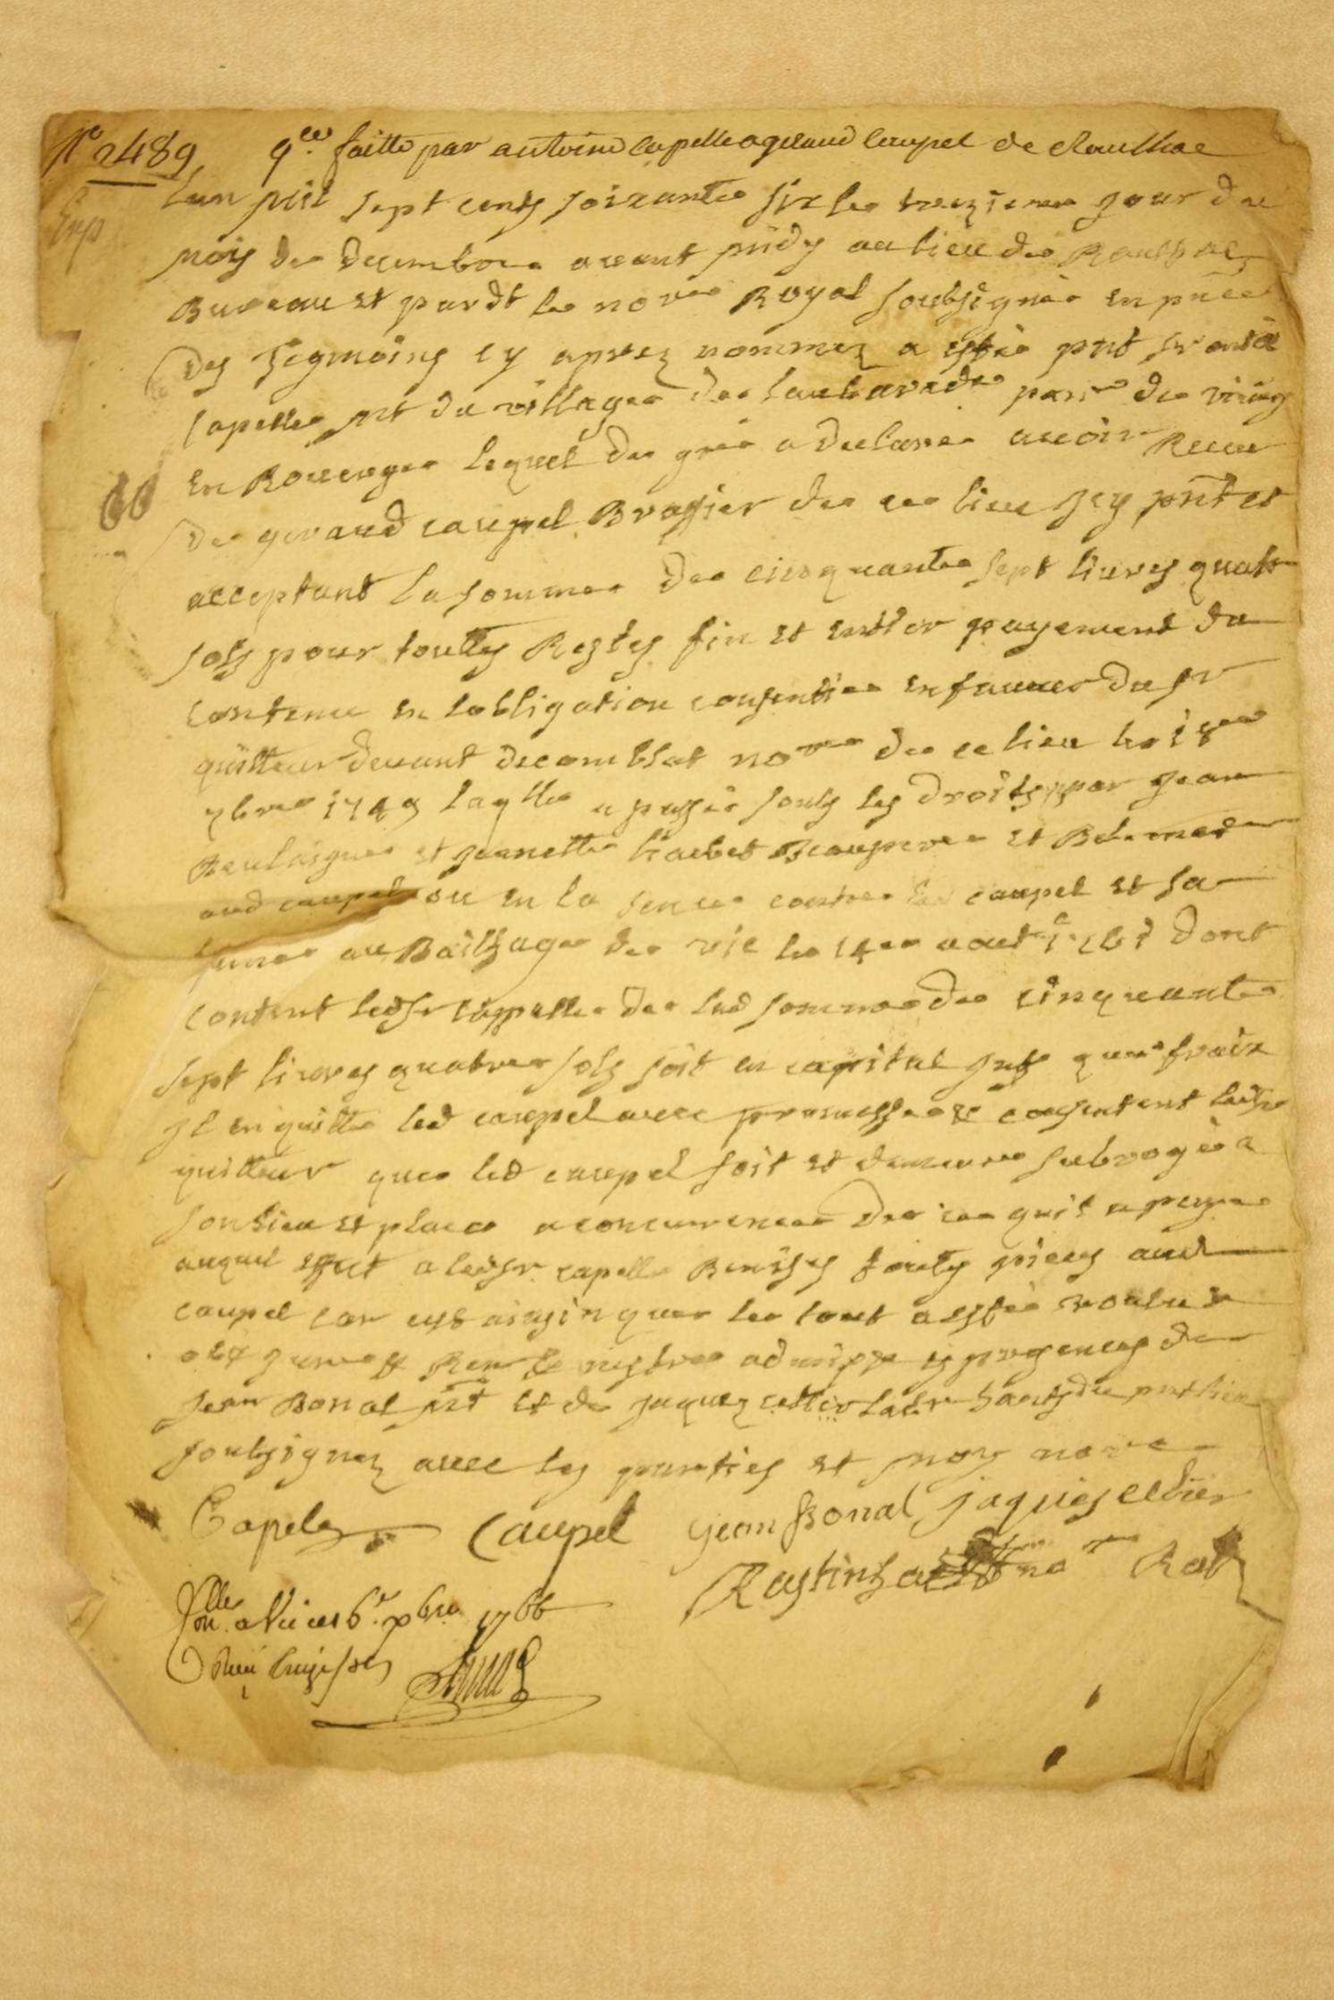 N° 2489 q.ce faitte par antoine Capelle a geraud Caupel de Roulhac
Lan mil sept cents soixante six le treizieme jour du
mois de decembre avant midy au lieu de Roulhac
Bureau et pardt le nore Royal soubsigné en pnce
des tesmoins cy aprez nommez a esté pnt sr antè
Capelle mt du village de paroe de
en Rouergue lequel de gré a declaré avoir Receu
de geraud caupel Brassier de ce lieu jcy pnt et
acceptant la somme de cinquante sept livres quatre
sols pour toutes Restes fin et entier payement du
contenu en lobligation consentie en faveur du sr
quitteur devant decomblat nore de ce lieu le 18me
7bre 1749 laqlle a passé soubs les droits par jean
et jeannette Beaupere et Belemere
aud caupel ou en la contre led caupel et sa
au Bailhage de vic le 14me aout dont
content ledsr Cappelle de lad somme de cinquante
sept livres quatre sols soit en capital jnts que fraix
jl en quitte led caupel avec promesse & consentent ledsr
quitteur que led caupel soit et demeure subrogé a
son lieu et place a concurrence de ce quil a payé
auquel effet a ledsr capelle Remises touts pieces aud
caupel car cest ainsin que le tout a esté voulu
presences de
jean Bonal mt et de jaquez celtier labr hants du pnt lieu
soubsignez avec les parties et moy nore
Capele Caupel jean Bonal jaques celtier
nore Ral
Conlle a Vic 6e xbre 1766
Reçu